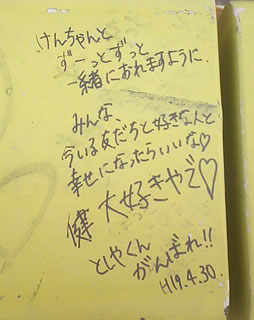 けんちゃんと
ずーっとずっと
一緒におれますように.
みんな、
今いる友だちと好きな人と
幸せになったらいいな♡
健 大好きやで♡
としやくん
がんばれ!!
H19.4.30.